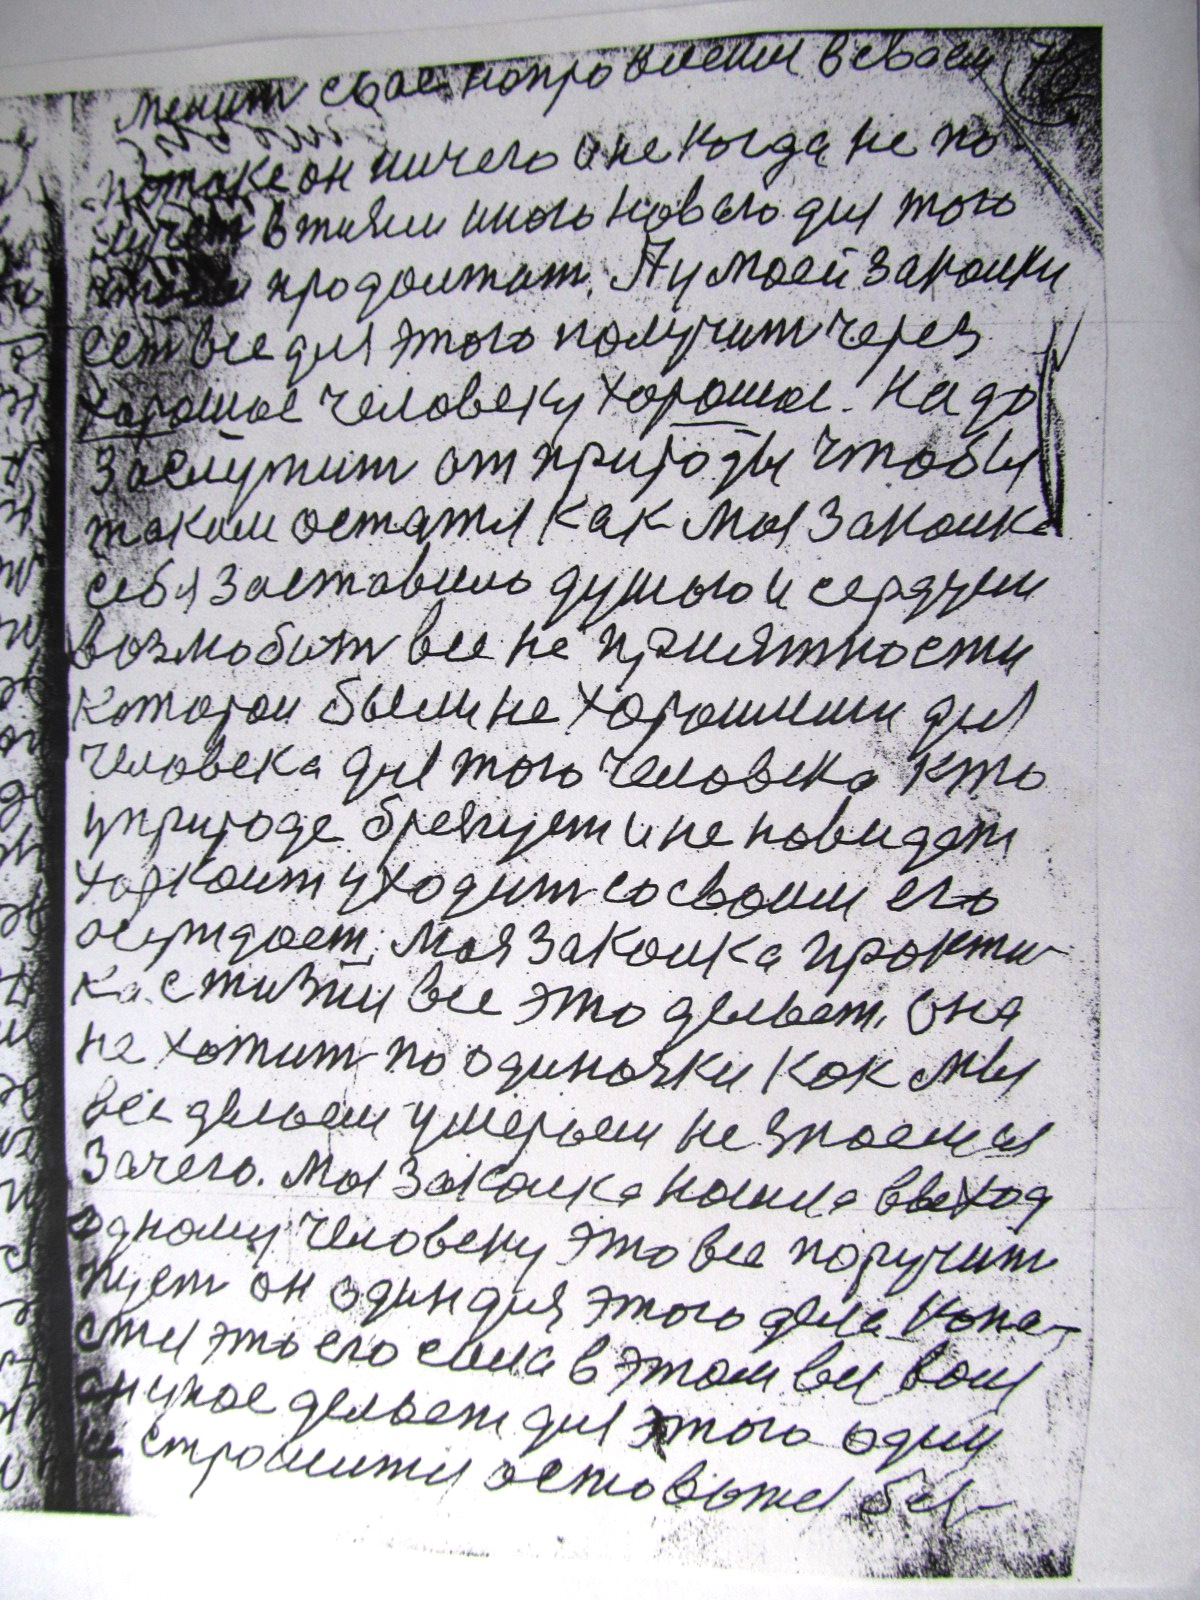 менит свае напровлении в сваем
потоке он ничего и не когда не по
лучет в жизни иного новаго для того
чтобы продолжат. А у моей закалки
ест все для этого получит через
хорошое человеку хорошое. Надо
заслужит от природы чтобы
таким остатя как моя закалка
себя заставила душою и сердцем
возлюбит все не приятности
каторои были не хорошими для
человека для того человека кто
у природе брезгует и не новидет
харкоит уходит со своим его
осуждает. Моя закалка практи
ка с жизни все это делает, она
не хотит по одиночки как мы
все делаем умераем не знаем
зачего. Моя закалка нашла выход
одному человеку это все поручит
он один для этого дела
это его сила в этом вся воля
иное делает для этого одну
страшитя оставатя бы-